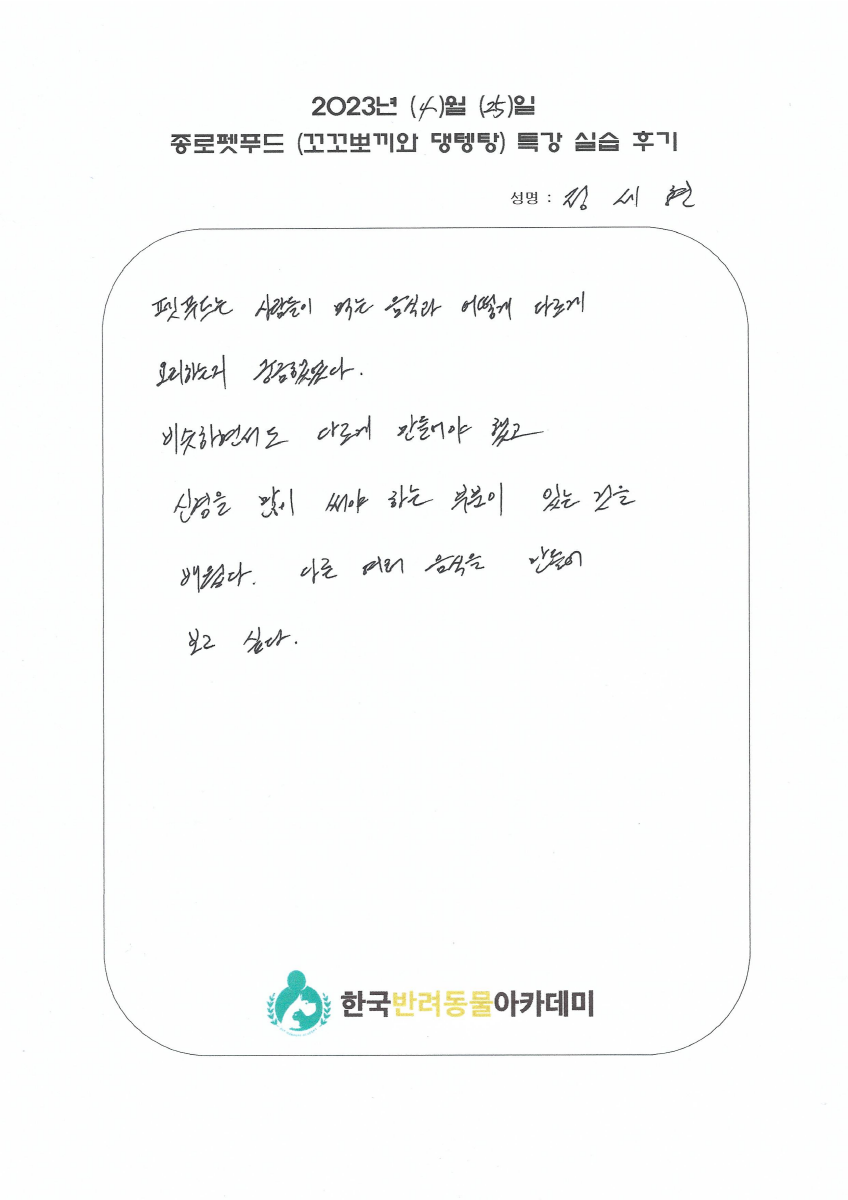 2023년 (4)월 (25)일
종로펫푸드 (꼬꼬뽀끼와 댕텡탕) 특강 실습 후기
성명 : 정 세 현
펫푸드는 사람들이 먹는 음식과 어떻게 다르게
요리하는지 궁금했었다.
비슷하면서도 다르게 만들어야 했고
신경을 많이 써야 하는 부분이 있는 것을
배웠다. 다른 여러 음식을 만들어
보고 싶다.
한국반려동물아카데미